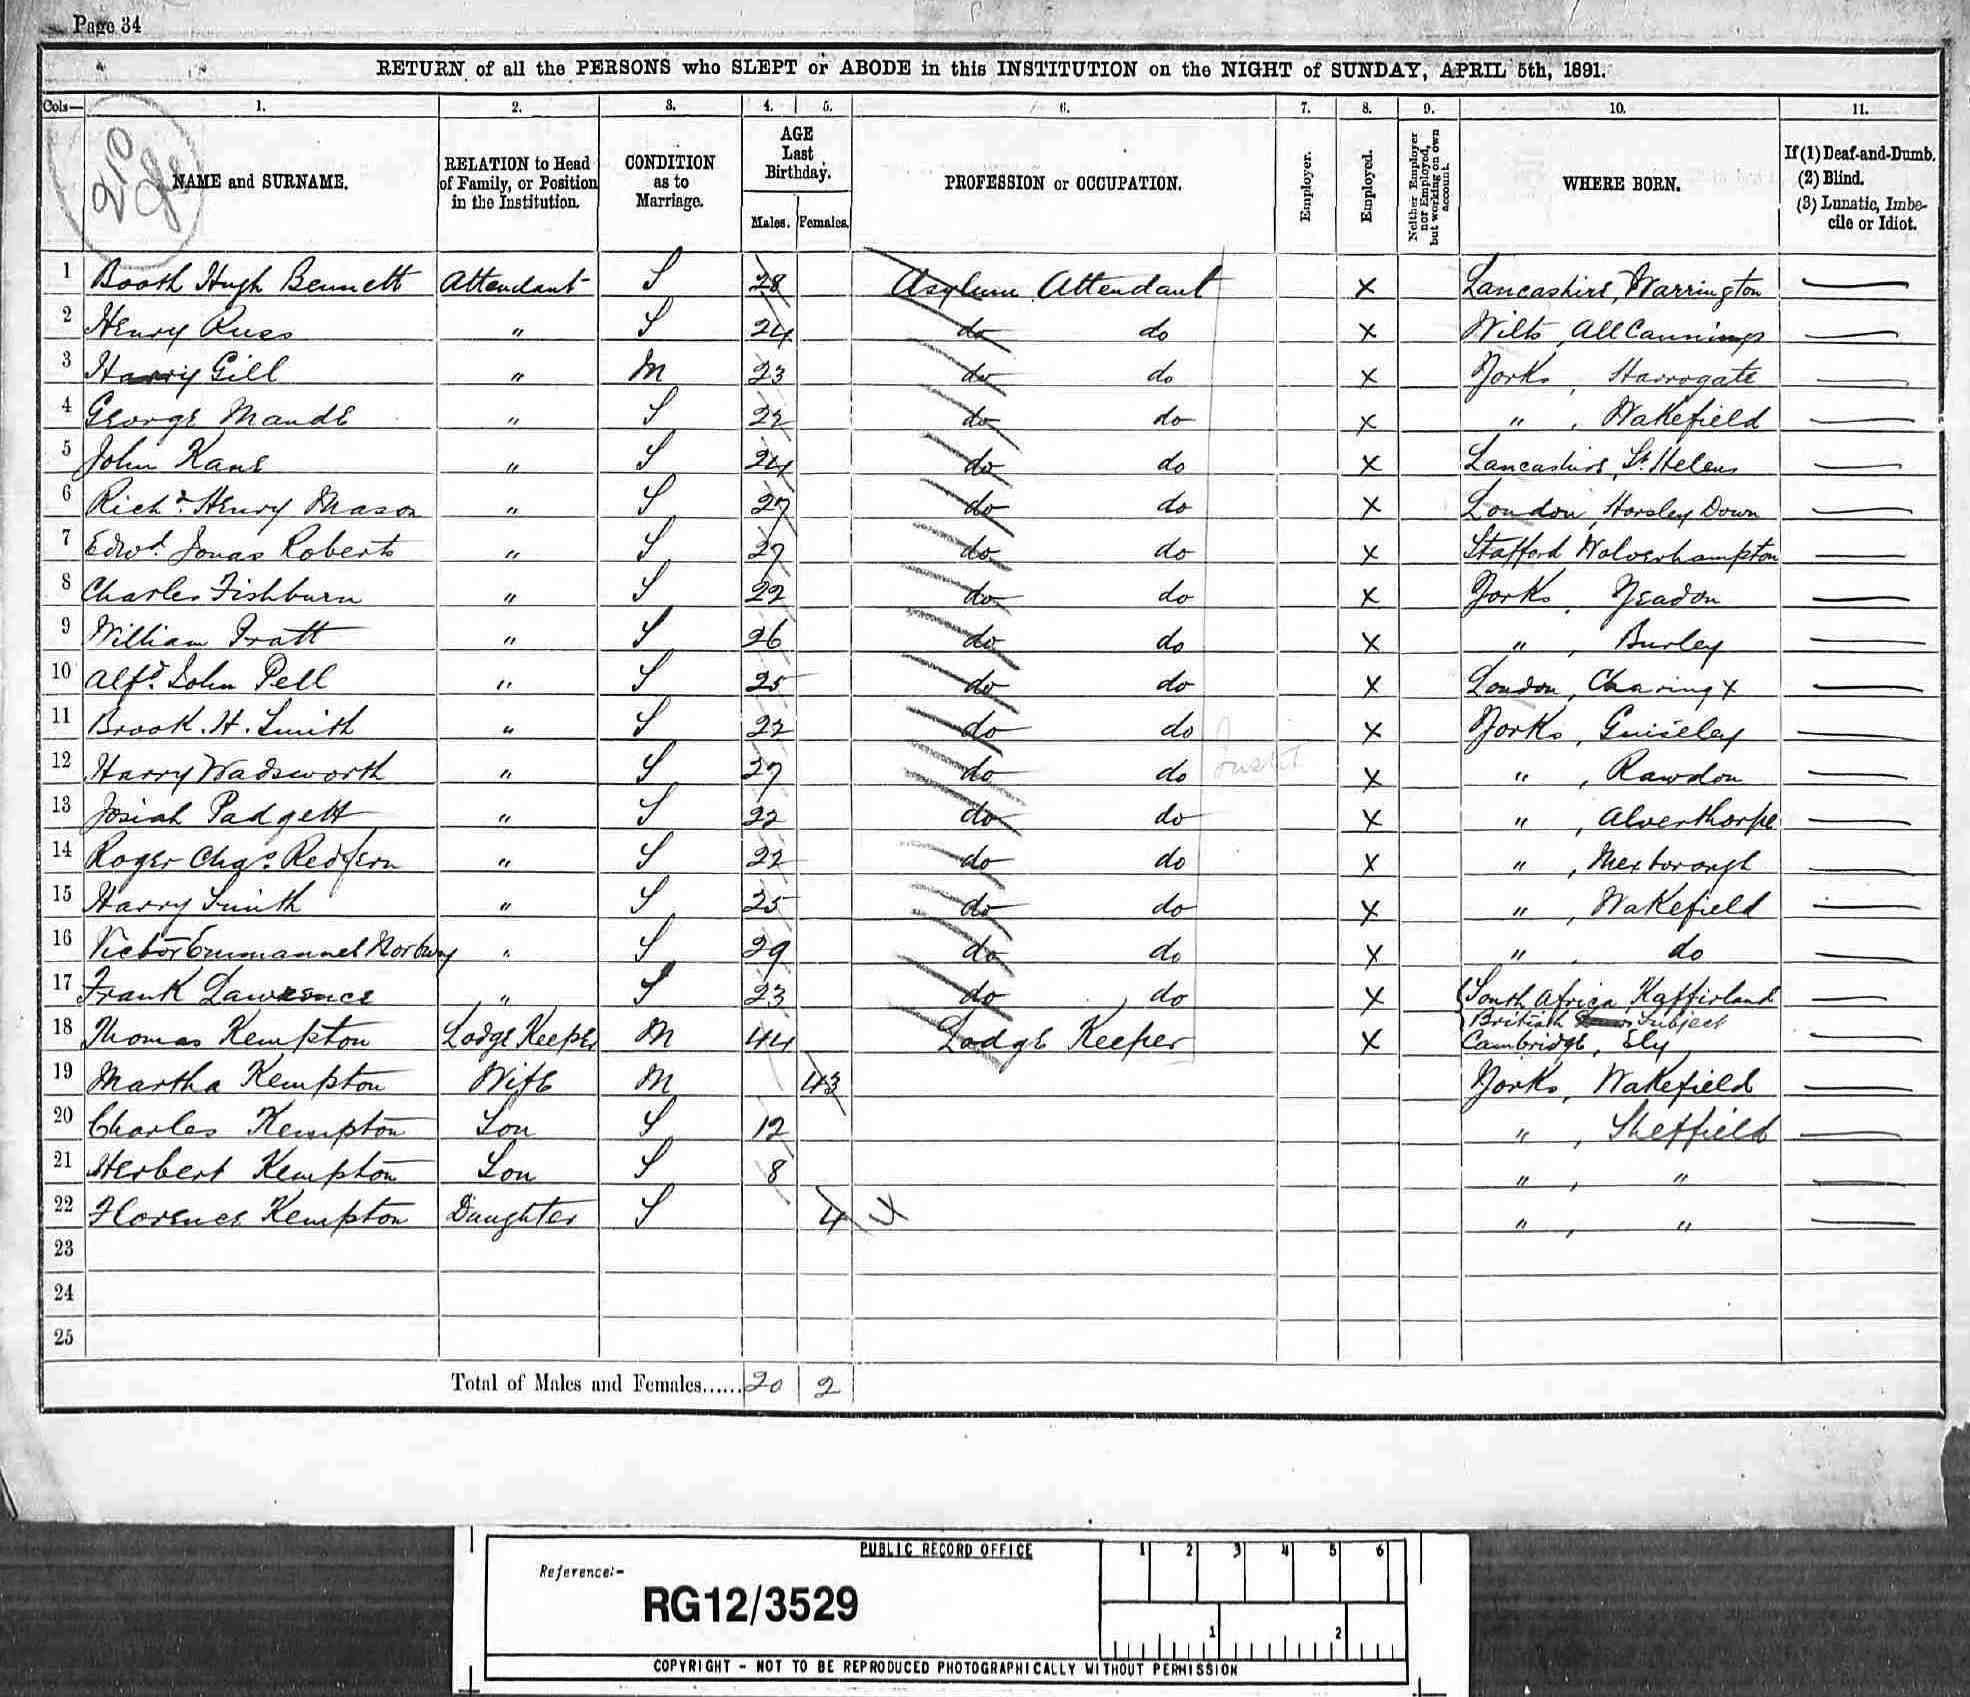 Page 34
RETURN of all the PERSONS who SLEPT or ABODE in this INSTITUTION on the NIGHT of SUNDAY, APRIL 5th, 1891.
Cols— 1. 2. 3. 4. 5. 6. 7. 8. 9. 10. 11.
NAME and SURNAME. RELATION to Head of Family, or Position in the Institution. CONDITION as to Marriage. AGE Last Birthday. Males. Females. PROFESSION or OCCUPATION. Employer. Employed. Neither Employer nor Employed, but working on own account. WHERE BORN. If (1) Deaf-and-Dumb. (2) Blind. (3) Lunatic, Imbecile or Idiot.
1 Booth Hugh Bennett Attendant S 28 Asylum Attendant X Lancashire, Warrington —
2 Henry Russ " S 24 do do X Wilts, All Cannings —
3 Harry Gill " M 23 do do X Yorks, Harrogate —
4 George Maude " S 22 do do X " , Wakefield —
5 John Kane " S 24 do do X Lancashire, St. Helens —
6 Richd. Henry Mason " S 27 do do X London, Horsley Down —
7 Edwd. Jonas Roberts " S 27 do do X Stafford Wolverhampton —
8 Charles Fishburn " S 22 do do X Yorks, Yeadon —
9 William Pratt " S 26 do do X " , Burley —
10 Alfd. John Pell " S 25 do do X London, Charing X —
11 Brook. H. Smith " S 22 do do X Yorks, Guiseley —
12 Harry Wadsworth " S 27 do do X " , Rawdon —
13 Josiah Padgett " S 22 do do X " , Alverthorpe —
14 Roger Chas. Redfern " S 22 do do X " , Mexborough —
15 Harry Smith " S 25 do do X " , Wakefield —
16 Victor Emmanuel " S 29 do do X " , do —
17 Frank Lawrence " S 23 do do X South Africa, Kaffirland —
British Subject
18 Thomas Kempton Lodge Keeper M 44 Lodge Keeper X Cambridge, Ely —
19 Martha Kempton Wife M 43 Yorks, Wakefield —
20 Charles Kempton Son S 12 " , Sheffield —
21 Herbert Kempton Son S 8 " , " —
22 Florence Kempton Daughter S 4 4 " , " —
23
24
25
Total of Males and Females...... 20 2
PUBLIC RECORD OFFICE
1 2 3 4 5 6
Reference:-
RG12/3529
1 2
COPYRIGHT - NOT TO BE REPRODUCED PHOTOGRAPHICALLY WITHOUT PERMISSION